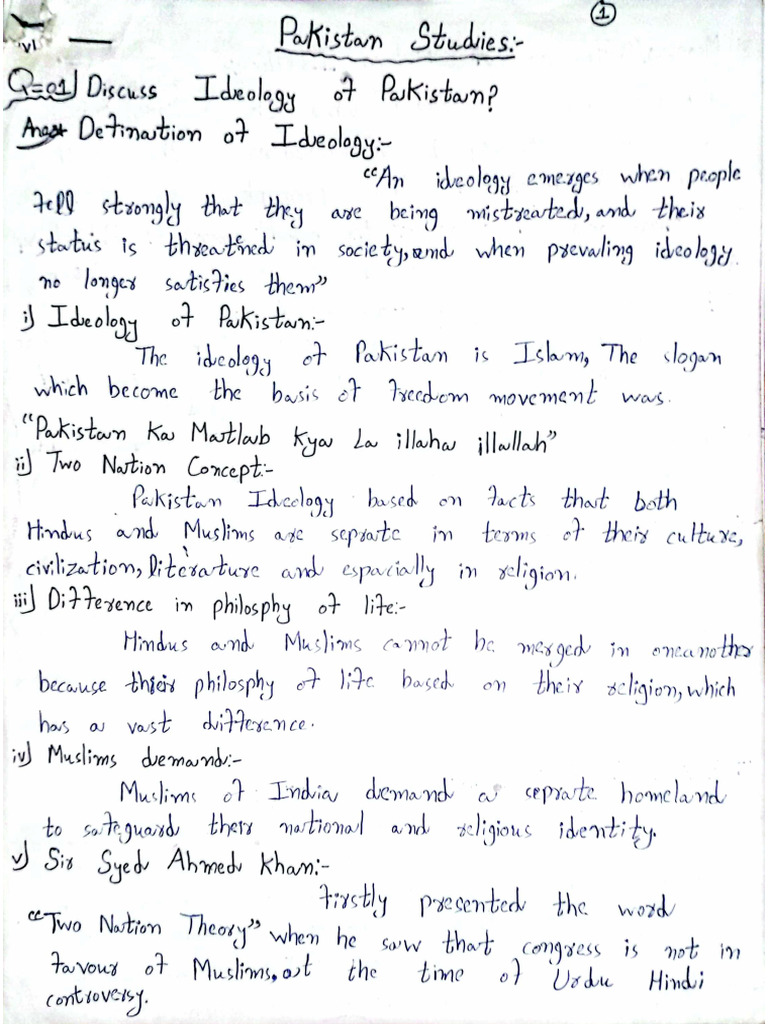 1
vi
Pakistan Studies:-
Q=01 Discuss Ideology of Pakistan?
Ans# Defination of Ideology:-
"An ideology emerges when people
fell strongly that they are being mistreated, and their
status is threatined in society, and when prevaling ideology
no longer satisfies them"
i) Ideology of Pakistan:-
The ideology of Pakistan is Islam, The slogan
which become the basis of freedom movement was.
"Pakistan Ka Matlab Kya La illaha illallah"
ii) Two Nation Concept:-
Pakistan Ideology based on facts that both
Hindus and Muslims are seprate in terms of their culture,
civilization, literature and espacially in religion.
iii) Difference in philosphy of life:-
Hindus and Muslims cannot be merged in oneanother
because their philosphy of life based on their religion, which
has a vast difference.
iv) Muslims demand:-
Muslims of India demand a seprate homeland
to safeguard their national and religious identity.
v) Sir Syed Ahmed Khan:-
Firstly presented the word
"Two Nation Theory" when he saw that congress is not in
favour of Muslims, at the time of Urdu Hindi
controversy.